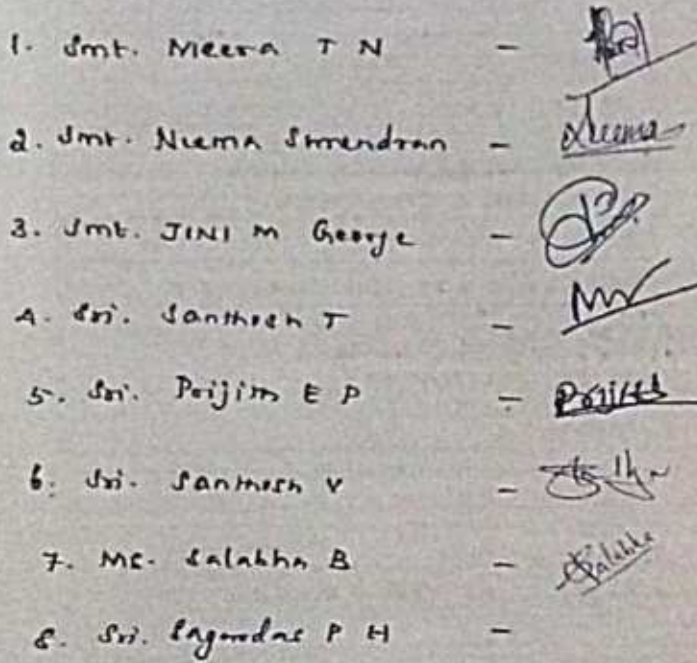 1. Smt. Meera T N -
2. Smt. Neema Surendran - Neema
3. Smt. JINI M George -
4. Sri. Santhosh T -
5. Sri. Prijith E P - Prijith
6. Sri. Santhosh V -
7. Ms. Salabha B - Salabha
8. Sri. Sagardas P H -